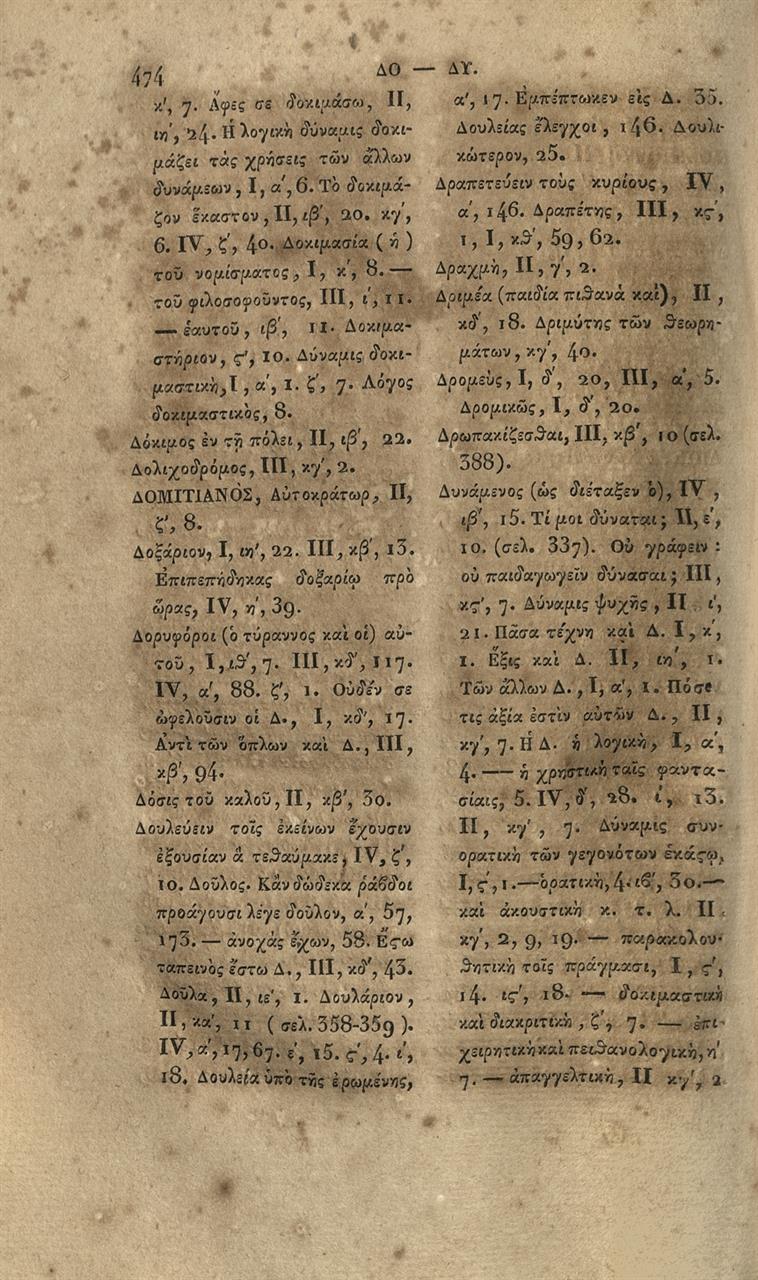 474
ΔΟ — ΔΥ.
κ', 7. Ἄφες σε δοκιμάσω, II,
ιη', 24. Ἡ λογικὴ δύναμις δοκι-
μάζει τὰς χρήσεις τῶν ἄλλων
δυνάμεων, I, α', 6. Τὸ δοκιμά-
ζον ἕκαστον, II, ιβ', 20. κγ',
6. IV, ζ', 40. Δοκιμασία (ἡ)
τοῦ νομίσματος, I, κ', 8. —
τοῦ φιλοσοφοῦντος, III, ί, 11.
— ἑαυτοῦ, ιβ', 11. Δοκιμα-
στήριον, ς', 10. Δύναμις δοκι-
μαστικὴ, I, α', 1. ζ', 7. Λόγος
δοκιμαστικὸς, 8.
Δόκιμος ἐν τῇ πόλει, II, ιβ', 22.
Δολιχοδρόμος, III, κγ', 2.
ΔΟΜΙΤΙΑΝΟΣ, Αὐτοκράτωρ, II,
ζ', 8.
Δοξάριον, I, ιη', 22. III, κβ', 13.
Ἐπιπεπήδηκας δοξαρίῳ πρὸ
ὥρας, IV, η', 39.
Δορυφόροι (ὁ τύραννος καὶ οἱ) αὐ-
τοῦ, I, ιθ', 7. III, κδ', 117.
IV, α', 88. ζ', 1. Οὐδέν σε
ὠφελοῦσιν οἱ Δ., I, κδ', 17.
Ἀντὶ τῶν ὅπλων καὶ Δ., III,
κβ', 94.
Δόσις τοῦ καλοῦ, II, κβ', 30.
Δουλεύειν τοῖς ἐκείνων ἔχουσιν
ἐξουσίαν ἃ τεθαύμακε, IV, ζ',
10. Δοῦλος. Κἂν δώδεκα ῥάβδοι
προάγουσι λέγε δοῦλον, α', 57,
173. — ἀνοχὰς ἔχων, 58. Ἔςω
ταπεινὸς ἔστω Δ., III, κδ', 43.
Δοῦλα, II, ιε', 1. Δουλάριον,
II, κα', 11 (σελ. 358-359).
IV, α', 17, 67. ε', 15. ς', 4. ί,
18. Δουλεία ὑπὸ τῆς ἐρωμένης,
α', 17. Ἐμπέπτωκεν εἰς Δ. 35.
Δουλείας ἔλεγχοι, 146. Δουλι-
κώτερον, 25.
Δραπετεύειν τοὺς κυρίους, IV,
α', 146. Δραπέτης, III, κς',
1, I, κθ', 59, 62.
Δραχμὴ, II, γ', 2.
Δριμέα (παιδία πιθανὰ καὶ), II,
κδ', 18. Δριμύτης τῶν θεωρη-
μάτων, κγ', 40.
Δρομεὺς, I, δ', 20, III, α', 5.
Δρομικῶς, I, δ', 20.
Δρωπακίζεσθαι, III, κβ', 10 (σελ.
388).
Δυνάμενος (ὡς διέταξεν ὁ), IV,
ιβ', 15. Τί μοι δύναται; II, ε',
10. (σελ. 337). Οὐ γράφειν :
οὐ παιδαγωγεῖν δύνασαι; III,
κς', 7. Δύναμις ψυχῆς, II ί,
21. Πᾶσα τέχνη καὶ Δ. I, κ',
1. Ἕξις καὶ Δ. II, ιη', 1.
Τῶν ἄλλων Δ., I, α', 1. Πόσε
τις ἀξία ἐστὶν αὐτῶν Δ., II,
κγ', 7. Ἡ Δ. ἡ λογικὴ, I, α',
4. — ἡ χρηστικὴ ταῖς φαντα-
σίαις, 5. IV, δ', 28. ί, 13.
II, κγ', 7. Δύναμις συν-
ορατικὴ τῶν γεγονότων ἑκάςῳ,
I, ς', 1. — ὁρατικὴ, 4. ιβ', 30. —
καὶ ἀκουστικὴ κ. τ. λ. II
κγ', 2, 9, 19. — παρακολου-
θητικὴ τοῖς πράγμασι, I, ς',
14. ις', 18. — δοκιμαστικὴ
καὶ διακριτικὴ, ζ', 7. — ἐπι-
χειρητικὴ καὶ πειθανολογικὴ, η'
7. — ἀπαγγελτικὴ, II κγ', 2